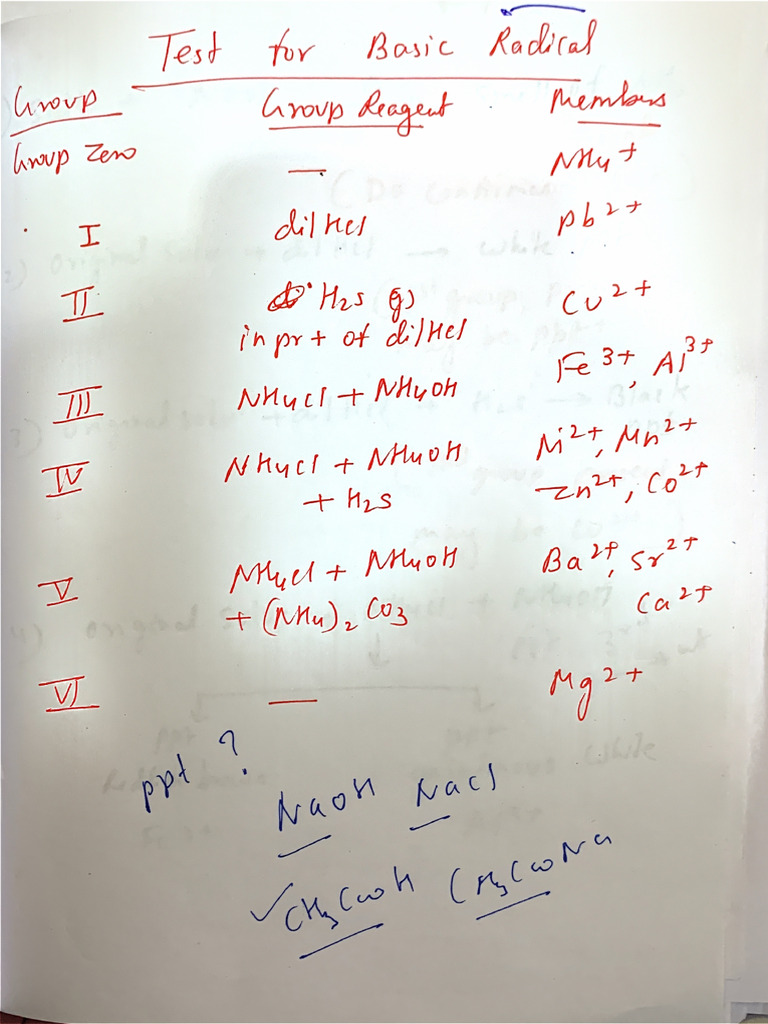 Test for Basic Radical
Group Group Reagent Members
Group Zero — NH4+
I dil HCl Pb2+
II H2S (g) Cu2+
in pr+ of dil HCl
III NH4Cl + NH4OH Fe3+, Al3+
IV NH4Cl + NH4OH Ni2+, Mn2+
+ H2S Zn2+, Co2+
V NH4Cl + NH4OH Ba2+, Sr2+
+ (NH4)2 CO3 Ca2+
VI — Mg2+
ppt ?
NaOH NaCl
✓CH3COOH CH3COONa